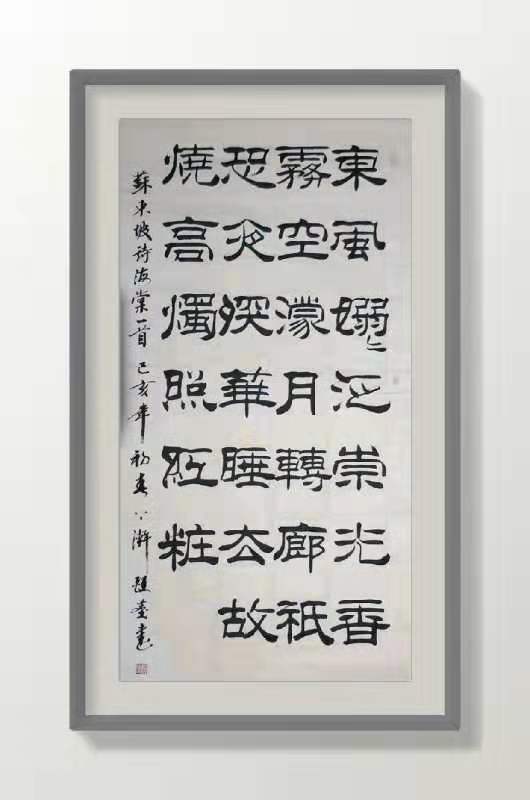 東風嫋〻泛崇光香
霧空濛月轉廊祇
恐夜深華睡去故
燒高燭照紅粧
蘇東坡詩海棠一首 己亥年初春 澣 書